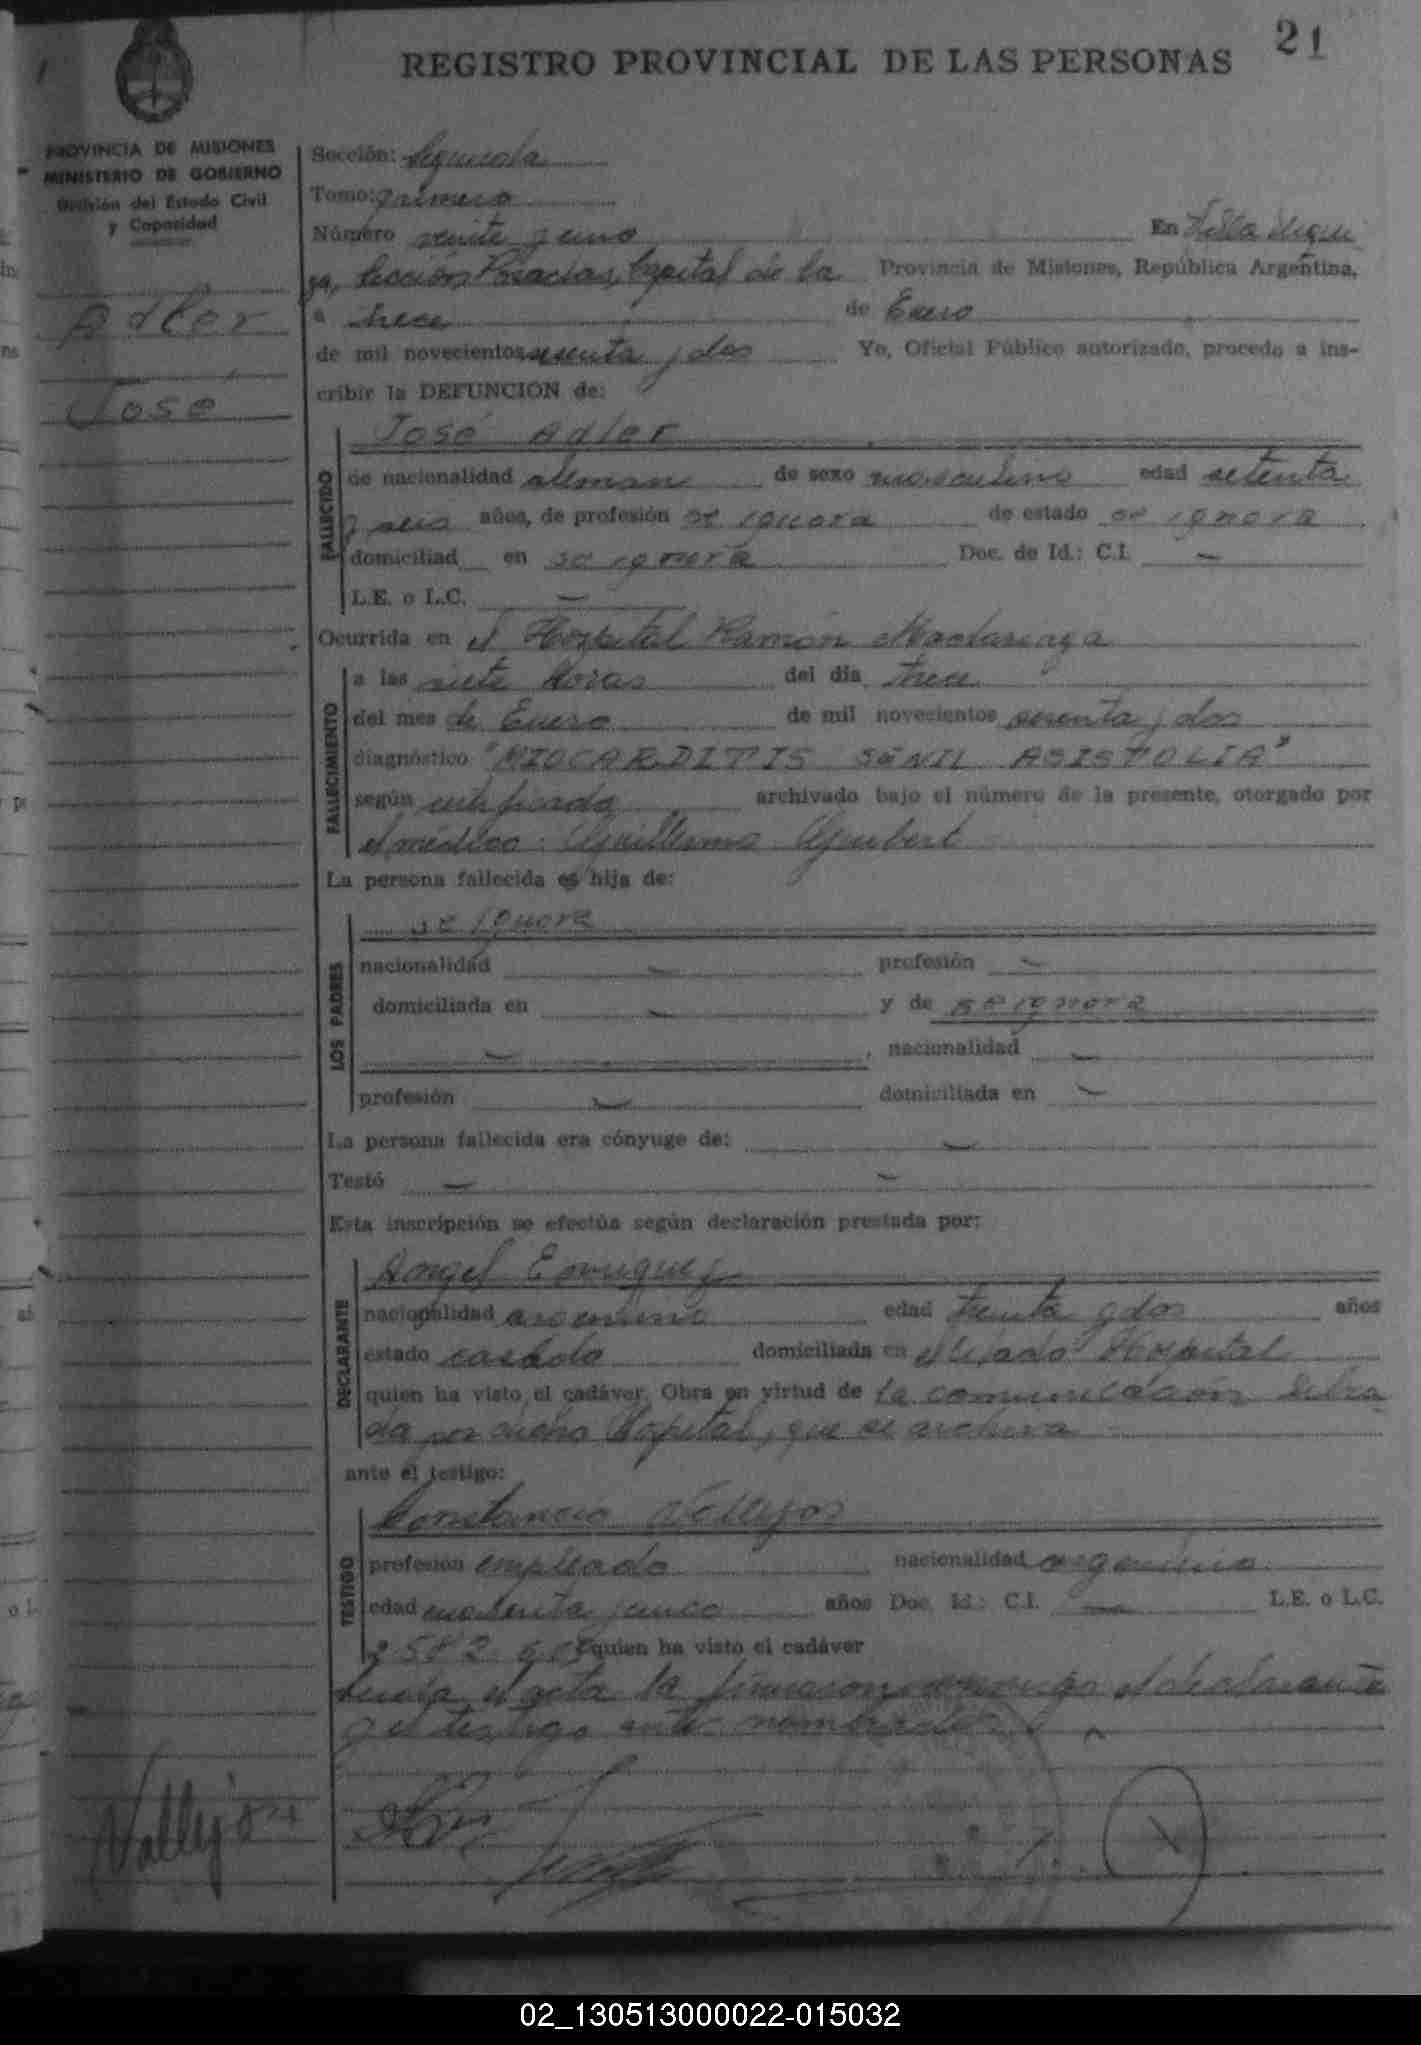 21
REGISTRO PROVINCIAL DE LAS PERSONAS
PROVINCIA DE MISIONES
MINISTERIO DE GOBIERNO
División del Estado Civil
y Capacidad
Adler
José
Sección: Segunda
Tomo: primero
Número veinte y uno En Villa Urqui
za, Sección Posadas, Capital de la Provincia de Misiones, República Argentina,
a trece de Enero
de mil novecientos sesenta y dos Yo, Oficial Público autorizado, procedo a ins-
cribir la DEFUNCION de:
José Adler
FALLECIDO
de nacionalidad alemán de sexo masculino edad setenta
y seis años, de profesión se ignora de estado se ignora
domiciliad en se ignora Doc. de Id.: C.I. —
L.E. o L.C. —
Ocurrida en el Hospital Ramón Madariaga
FALLECIMIENTO
a las siete horas del día trece
del mes de Enero de mil novecientos sesenta y dos
diagnóstico "MIOCARDITIS SENIL ASISTOLIA"
según certificado archivado bajo el número de la presente, otorgado por
el médico: Guillermo
La persona fallecida es hija de:
LOS PADRES
se ignora
nacionalidad — profesión —
domiciliada en — y de se ignora
— , nacionalidad —
profesión — domiciliada en —
La persona fallecida era cónyuge de: —
Testó — —
Esta inscripción se efectúa según declaración prestada por:
DECLARANTE
Angel Enriquez
nacionalidad argentino edad treinta y dos años
estado casado domiciliada en el citado Hospital
quien ha visto el cadáver. Obra en virtud de la comunicación libra
da por dicho Hospital, que se archiva
ante el testigo:
TESTIGO
Constancio Vallejos
profesión empleado nacionalidad argentino
edad cuarenta años Doc. Id.: C.I. — L.E. o L.C.
quien ha visto el cadáver
Leída el acta la firmaron conmigo el declarante
y el testigo ante nombrados
Vallejos
02_130513000022-015032